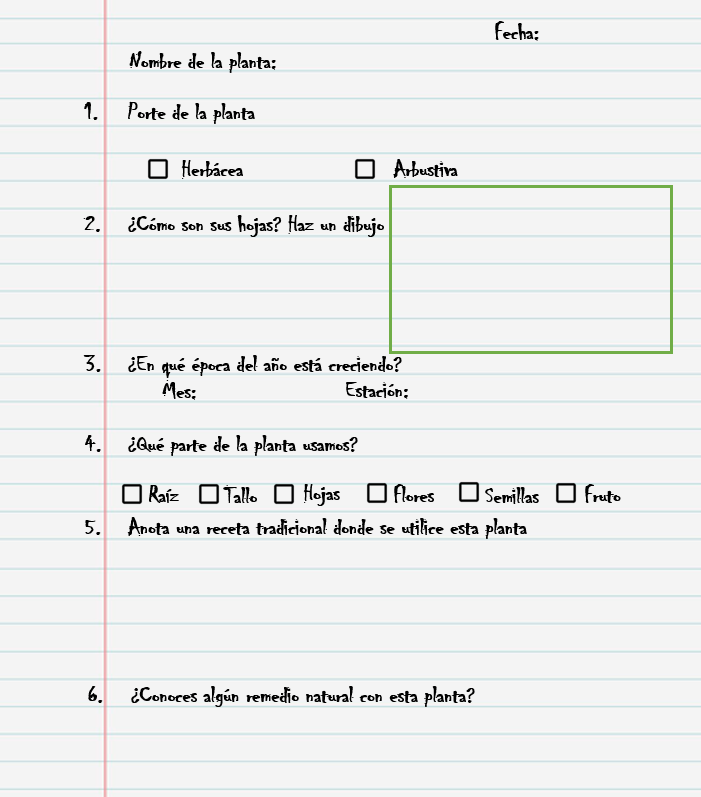 Fecha:
Nombre de la planta:
1. Porte de la planta
Herbácea Arbustiva
2. ¿Cómo son sus hojas? Haz un dibujo
3. ¿En qué época del año está creciendo?
Mes: Estación:
4. ¿Qué parte de la planta usamos?
Raíz Tallo Hojas Flores Semillas Fruto
5. Anota una receta tradicional donde se utilice esta planta
6. ¿Conoces algún remedio natural con esta planta?